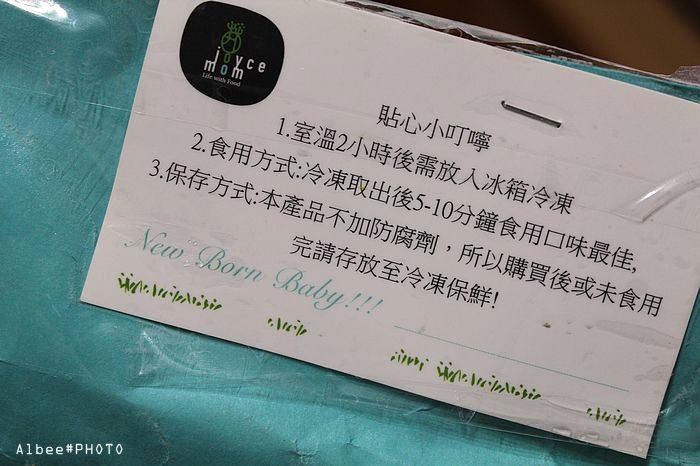 joyce
mom
Life with Food
貼心小叮嚀
1.室溫2小時後需放入冰箱冷凍
2.食用方式:冷凍取出後5-10分鐘食用口味最佳,
3.保存方式:本產品不加防腐劑，所以購買後或未食用
完請存放至冷凍保鮮!
New Born Baby!!!
Albee#PHOTO